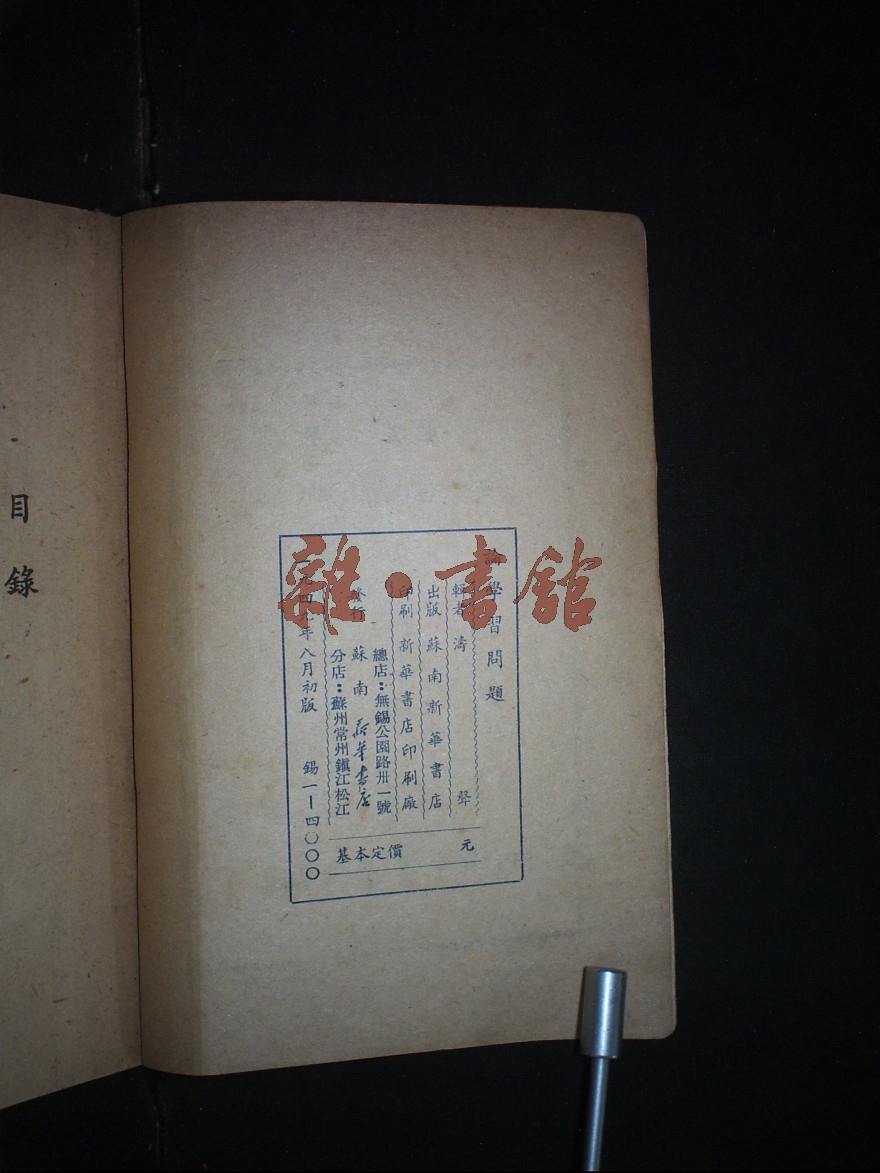 論學習問題
輯者 濤 聲
出版 蘇南新華書店
印刷 新華書店印刷廠
總店：無錫公園路卅一號
發行 蘇南新華書店
分店：蘇州常州鎮江松江
基本定價 元
一九四九年八月初版 錫一—四〇〇〇
目錄
雜·書館